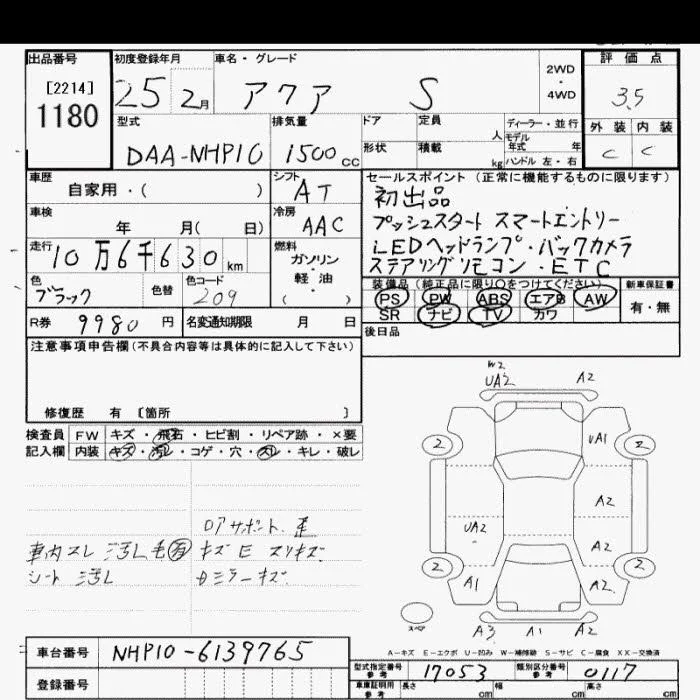 出品番号 初度登録年月 車名・グレード 2WD・4WD 評価点
[2214] 1180 25 2月 アクア S 3.5
型式 排気量 ドア 定員 人 ディーラー・並行 外装 内装
DAA-NHP10 1500cc 形状 積載 kg モデル年式 年 ハンドル 左・右 C C
車歴 自家用・( ) シフト AT セールスポイント (正常に機能するものに限ります)
車検 年 月( 日) 冷房 AAC 初出品
プッシュスタート スマートエントリー
走行 10万6千630km 燃料 ガソリン・軽油 ( ) LEDヘッドランプ・バックカメラ
ステアリングリモコン・ETC
色 ブラック 色替 色コード 209 装備品 (純正品に限り○をつけてください) 新車保証書
PS PW ABS エアB AW 有・無
R券 9980円 名変通知期限 月 日 SR ナビ TV カワ
注意事項申告欄 (不具合内容等は具体的に記入して下さい) 後日品
修復歴 有 〔箇所 〕
検査員 FW キズ・飛石・ヒビ割・リペア跡・×要
記入欄 内装 キズ・汚レ・コゲ・穴・スレ・キレ・破レ
W2
UA2 A2
2 UA1 2
A2
UA2 A2
2 2
A1 A2
スペア A3 A1 A2
車内スレ 汚レ 毛有
シート 汚レ
ドアサポート 歪
キズ E スリキズ
A-キズ E-エクボ U-凹み W-補修跡 S-サビ C-腐食 XX-交換済
車台番号 NHP10-6139765
型式指定番号 参考 17053 類別区分番号 参考 0117
登録番号 車庫証明用 参考 長さ cm 幅 cm 高さ cm